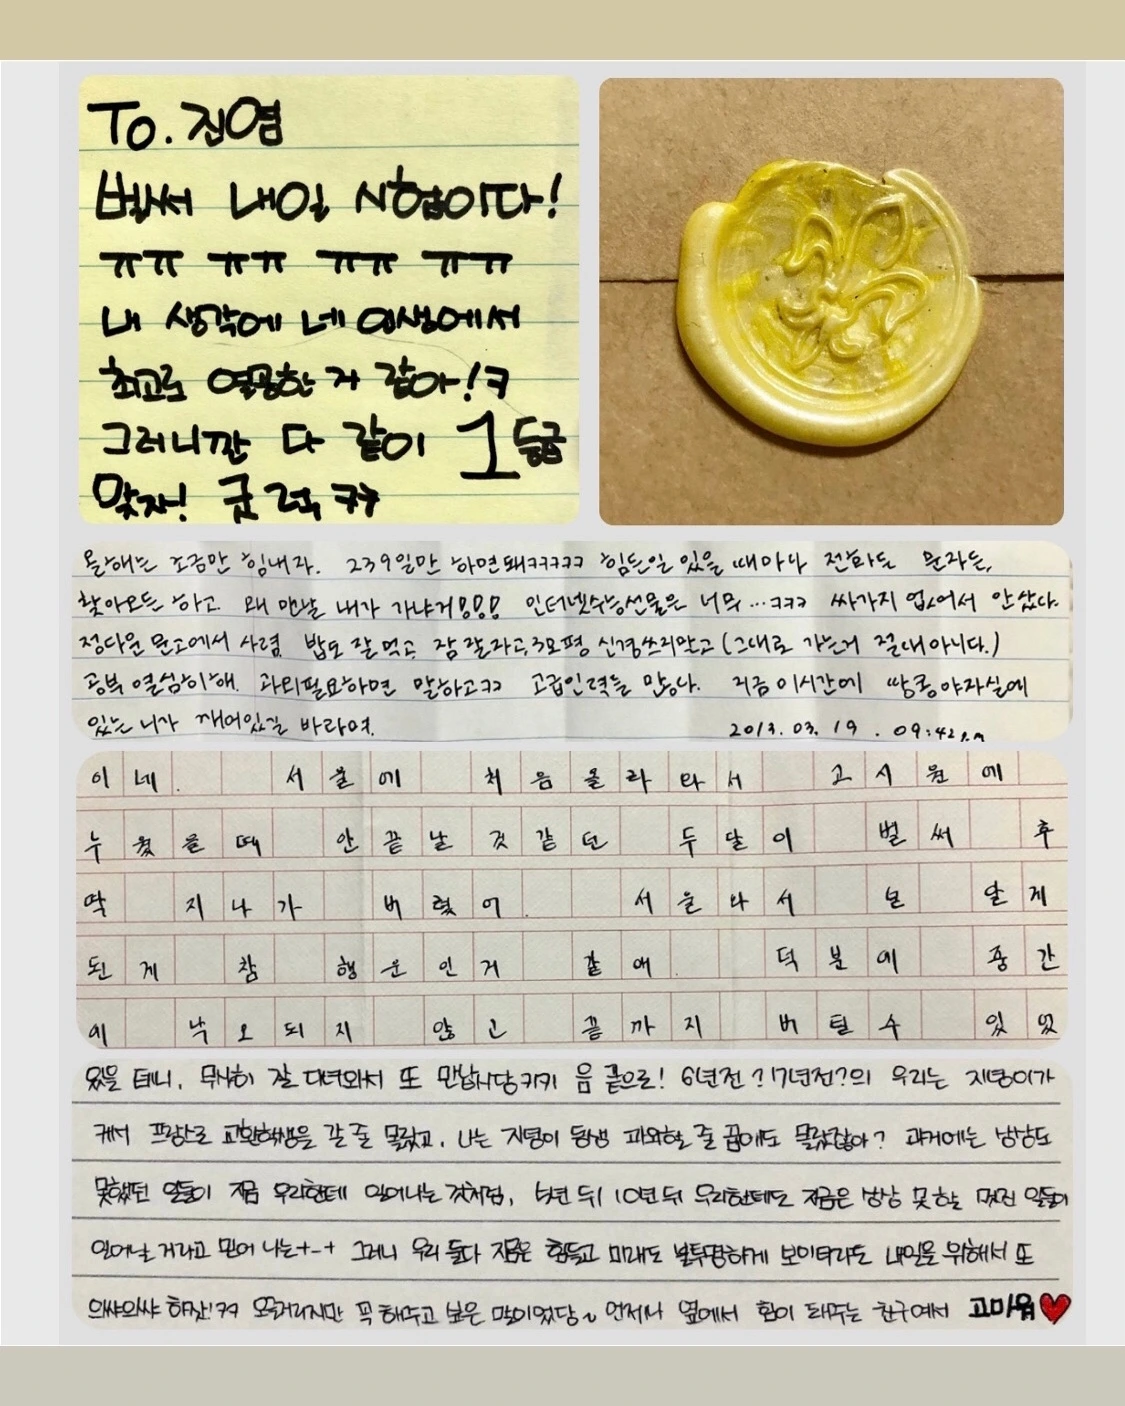 To. 진염
벌써 내일 시험이다!
ㅠㅠ ㅠㅠ ㅠㅠ ㅠㅠ
내 생각에 네 인생에서
최고로 열공한 거 같아!ㅋ
그러니깐 다 같이 1등급
맞자! 굿럭 ㅋㅋ
올해는 조금만 힘내라. 239일만 하면돼ㅋㅋㅋㅋㅋ 힘든일 있을 때마다 전화든 문자든,
찾아오든 하고. 왜 맨날 내가 가냐거!!!! 인터넷수능선물은 너무...ㅋㅋㅋ 싸가지 없어서 안샀다.
정다운 문고에서 사렴. 밥도 잘먹고, 잠 잘자고, 3모평 신경쓰지말고 (그대로 가는거 절대아니다.)
공부 열심히해. 과외필요하면 말하고ㅋㅋ 고급인력들 많잖냐. 지금 이시간에 쌍용야자실에
있는 니가 깨어있길 바라며. 2013. 03. 19 . 09:42 p.m
이네. 서울에 처음 올라와서 고시원에
누웠을때 안끝날 것같던 두달이 벌써 후
딱 지나가 버렸어. 서울와서 널 알게
된게 참 행운인거 같애. 덕분에 중간
에 낙오되지 않고 끝까지 버틸수 있었
있을 테니, 무사히 잘 다녀와서 또 만납시당ㅋㅋㅋ 음 끝으로! 6년전?!7년전?의 우리는 지녕이가
커서 프랑스로 교환학생을 갈 줄 몰랐고, 나는 지녕이 동생 과외할 줄 꿈에도 몰랐잖아? 과거에는 상상도
못했던 일들이 지금 우리한테 일어나는 것처럼, 5년 뒤 10년 뒤 우리한테도 지금은 상상 못 할 멋진 일들이
일어날 거라고 믿어 나는+_+ 그러니 우리 둘다 지금은 힘들고 미래도 불투명하게 보이더라도 내일을 위해서 또
으쌰으쌰 하잣!ㅋㅋ 오글거리지만 꼭 해주고 싶은 말이었당~ 언제나 옆에서 힘이 돼주는 친구여서 고마워